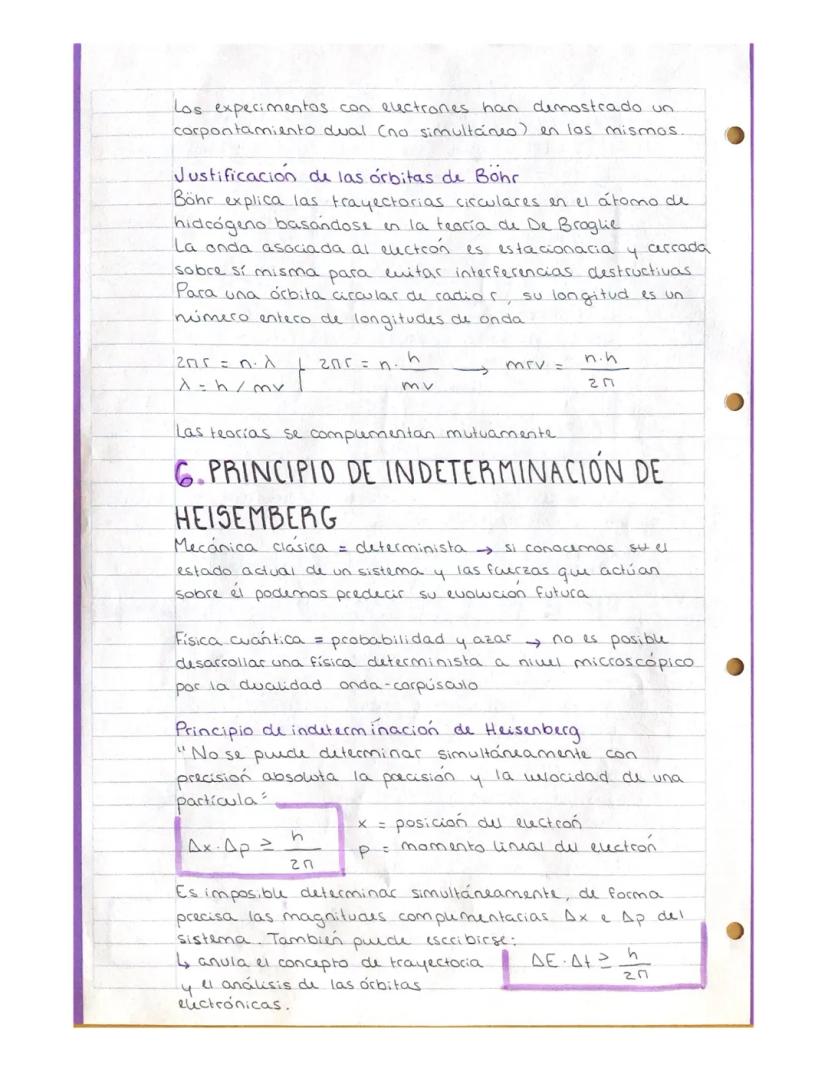 Los experimentos con electrones han demostrado un
corpontamiento dual (no simultáneo) en los mismos.
Justificación de las órbitas de Böhr
Böhr explica las trayectorias circulares en el átomo de
hidrógeno basándose en la teoría de De Broglie
La onda asociada al electrón es estacionaria y cerrada
sobre sí misma para evitar interferencias destructivas
Para una órbita circular de radio r, su longitud es un
número entero de longitudes de onda
2πr = n·λ | 2πr = n· h/mv → mrv = n·h/2π
λ = h/mv
Las teorías se complementan mutuamente
6. PRINCIPIO DE INDETERMINACIÓN DE
HEISEMBERG
Mecánica clásica = determinista → si conocemos su el
estado actual de un sistema y las fuerzas que actúan
sobre él podemos predecir su evolución futura
Física cuántica = probabilidad y azar → no es posible
desarrollar una física determinista a nivel microscópico
por la dualidad onda-corpúsculo
Principio de indeterminación de Heisenberg
"No se puede determinar simultáneamente con
precisión absoluta la precisión y la velocidad de una
partícula"
x = posición del electrón
Δx·Δp ≥ h/2π
p = momento lineal del electrón
Es imposible determinar simultáneamente, de forma
precisa las magnitudes complementarias Δx e Δp del
sistema. También puede escribirse:
↳ anula el concepto de trayectoria
y el análisis de las órbitas
electrónicas.
ΔE·Δt ≥ h/2π